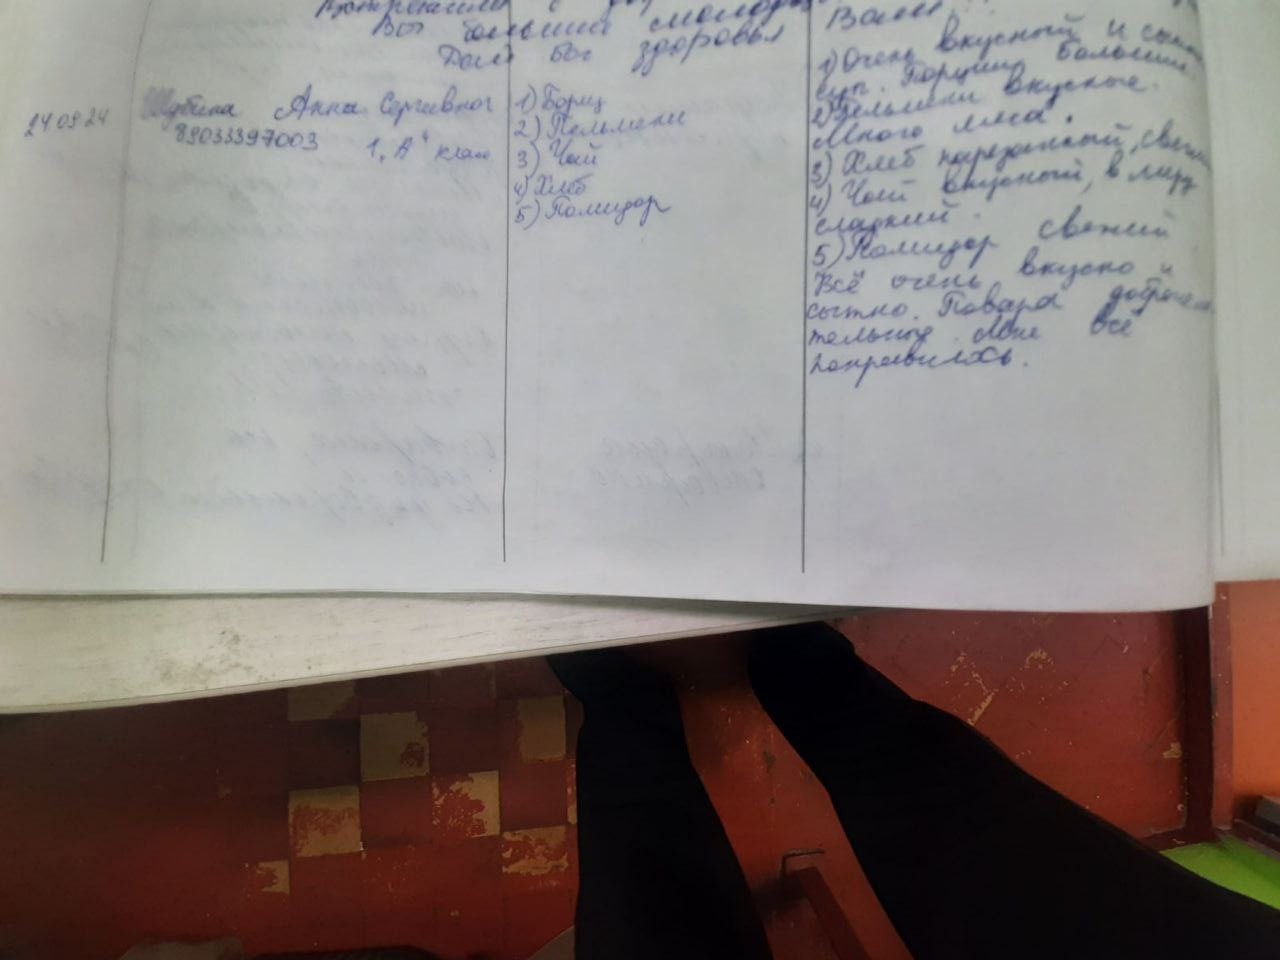 Вы большие молодцы
Дай бог здоровья
Вам
24.09.24
Шубина Анна Сергивног
89033397003
1 "А" клас
1) Борщ
2) Пельмени
3) Чай
4) Хлеб
5) Помидор
1) Очень вкусный и
суп. Порции большие
2) Пельмени вкусные.
Много мяса.
3) Хлеб нарезанный,
4) Чай вкусный, в меру
сладкий.
5) Помидор свежий
Всё очень вкусно и
сытно. Повара доброже
тельные. Мне все
понравилось.